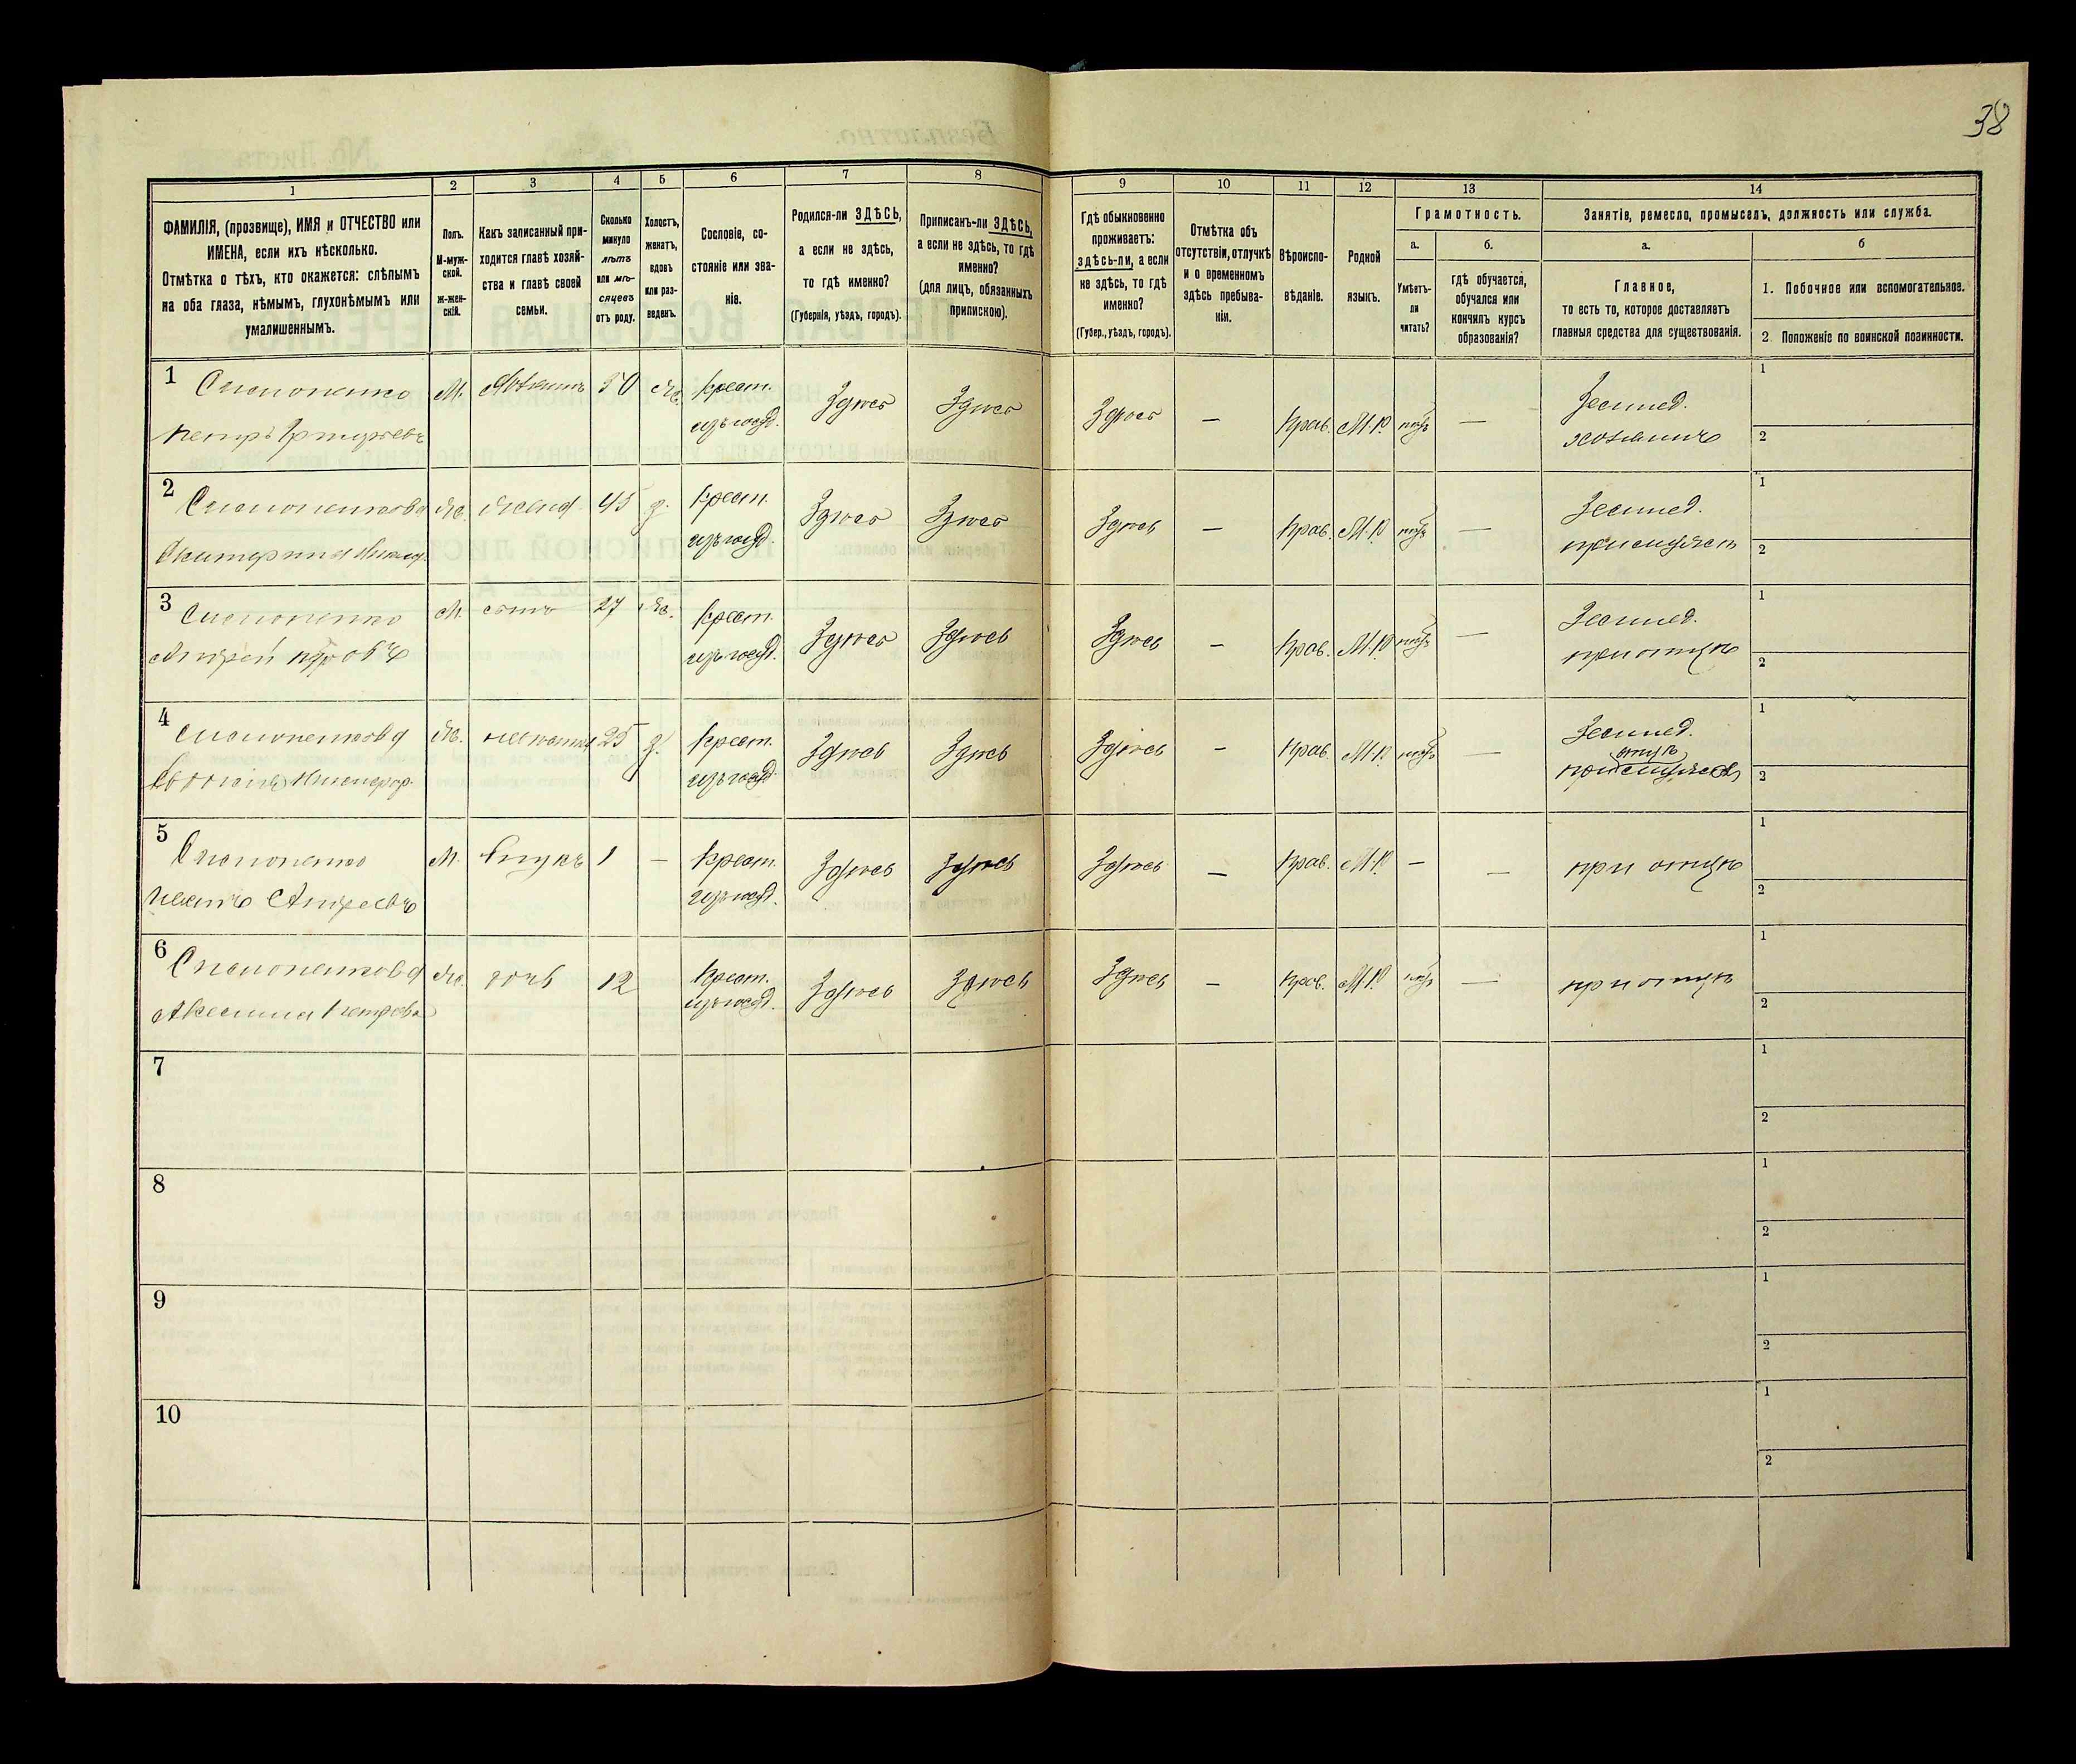 38
1
2
3
4
5
6
7
8
9
10
11
12
13
14
ФАМИЛІЯ, (прозвище), ИМЯ и ОТЧЕСТВО или
ИМЕНА, если ихъ нѣсколько.
Отмѣтка о тѣхъ, кто окажется: слѣпымъ
на оба глаза, нѣмымъ, глухонѣмымъ или
умалишеннымъ.
Полъ.
М-муж-
ской.
ж-жен-
скій.
Какъ записанный при-
ходится главѣ хозяй-
ства и главѣ своей
семьи.
Сколько
минуло
лѣтъ
или мѣ-
сяцевъ
отъ роду.
Холостъ,
женатъ,
вдовъ
или раз-
веденъ.
Сословіе, со-
стояніе или зва-
ніе.
Родился-ли ЗДѢСЬ,
а если не здѣсь,
то гдѣ именно?
(Губернія, уѣздъ, городъ).
Приписанъ-ли ЗДѢСЬ,
а если не здѣсь, то гдѣ
именно?
(для лицъ, обязанныхъ
припискою).
Гдѣ обыкновенно
проживаетъ:
здѣсь-ли, а если
не здѣсь, то гдѣ
именно?
(Губер., уѣздъ, городъ).
Отмѣтка объ
отсутствіи, отлучкѣ
и о временномъ
здѣсь пребыва-
ніи.
Вѣроиспо-
вѣданіе.
Родной
языкъ.
Грамотность.
а.
Умѣетъ-
ли
читать?
б.
гдѣ обучается,
обучался или
кончилъ курсъ
образованія?
Занятіе, ремесло, промыселъ, должность или служба.
а.
Главное,
то есть то, которое доставляетъ
главныя средства для существованія.
б
1. Побочное или вспомогательное.
2 Положеніе по воинской повинности.
1
М. Хозяинъ 50 ж. Крест. Здѣсь Здѣсь Здѣсь — Прав. М.Р. — Землед. 1
Петръ изъ госуд. хозяинъ 2
2
ж. жена 45 з. Крест. Здѣсь Здѣсь Здѣсь — Прав. М.Р. — Землед. 1
Екатерина изъ госуд. при мужѣ 2
3
М. сынъ 27 ж. Крест. Здѣсь Здѣсь Здѣсь — Прав. М.Р. — Землед. 1
Андрей изъ госуд. при отцѣ 2
4
ж. невѣстка 25 з. Крест. Здѣсь Здѣсь Здѣсь — Прав. М.Р. — Землед. 1
изъ госуд. 2
5
М. внукъ 1 — Крест. Здѣсь Здѣсь Здѣсь — Прав. М.Р. — — при отцѣ 1
Иванъ Андреевъ изъ госуд. 2
6
ж. дочь 12 Крест. Здѣсь Здѣсь Здѣсь — Прав. М.Р. — при отцѣ 1
Аксинья Петрова изъ госуд. 2
7 1
2
8 1
2
9 1
2
10 1
2